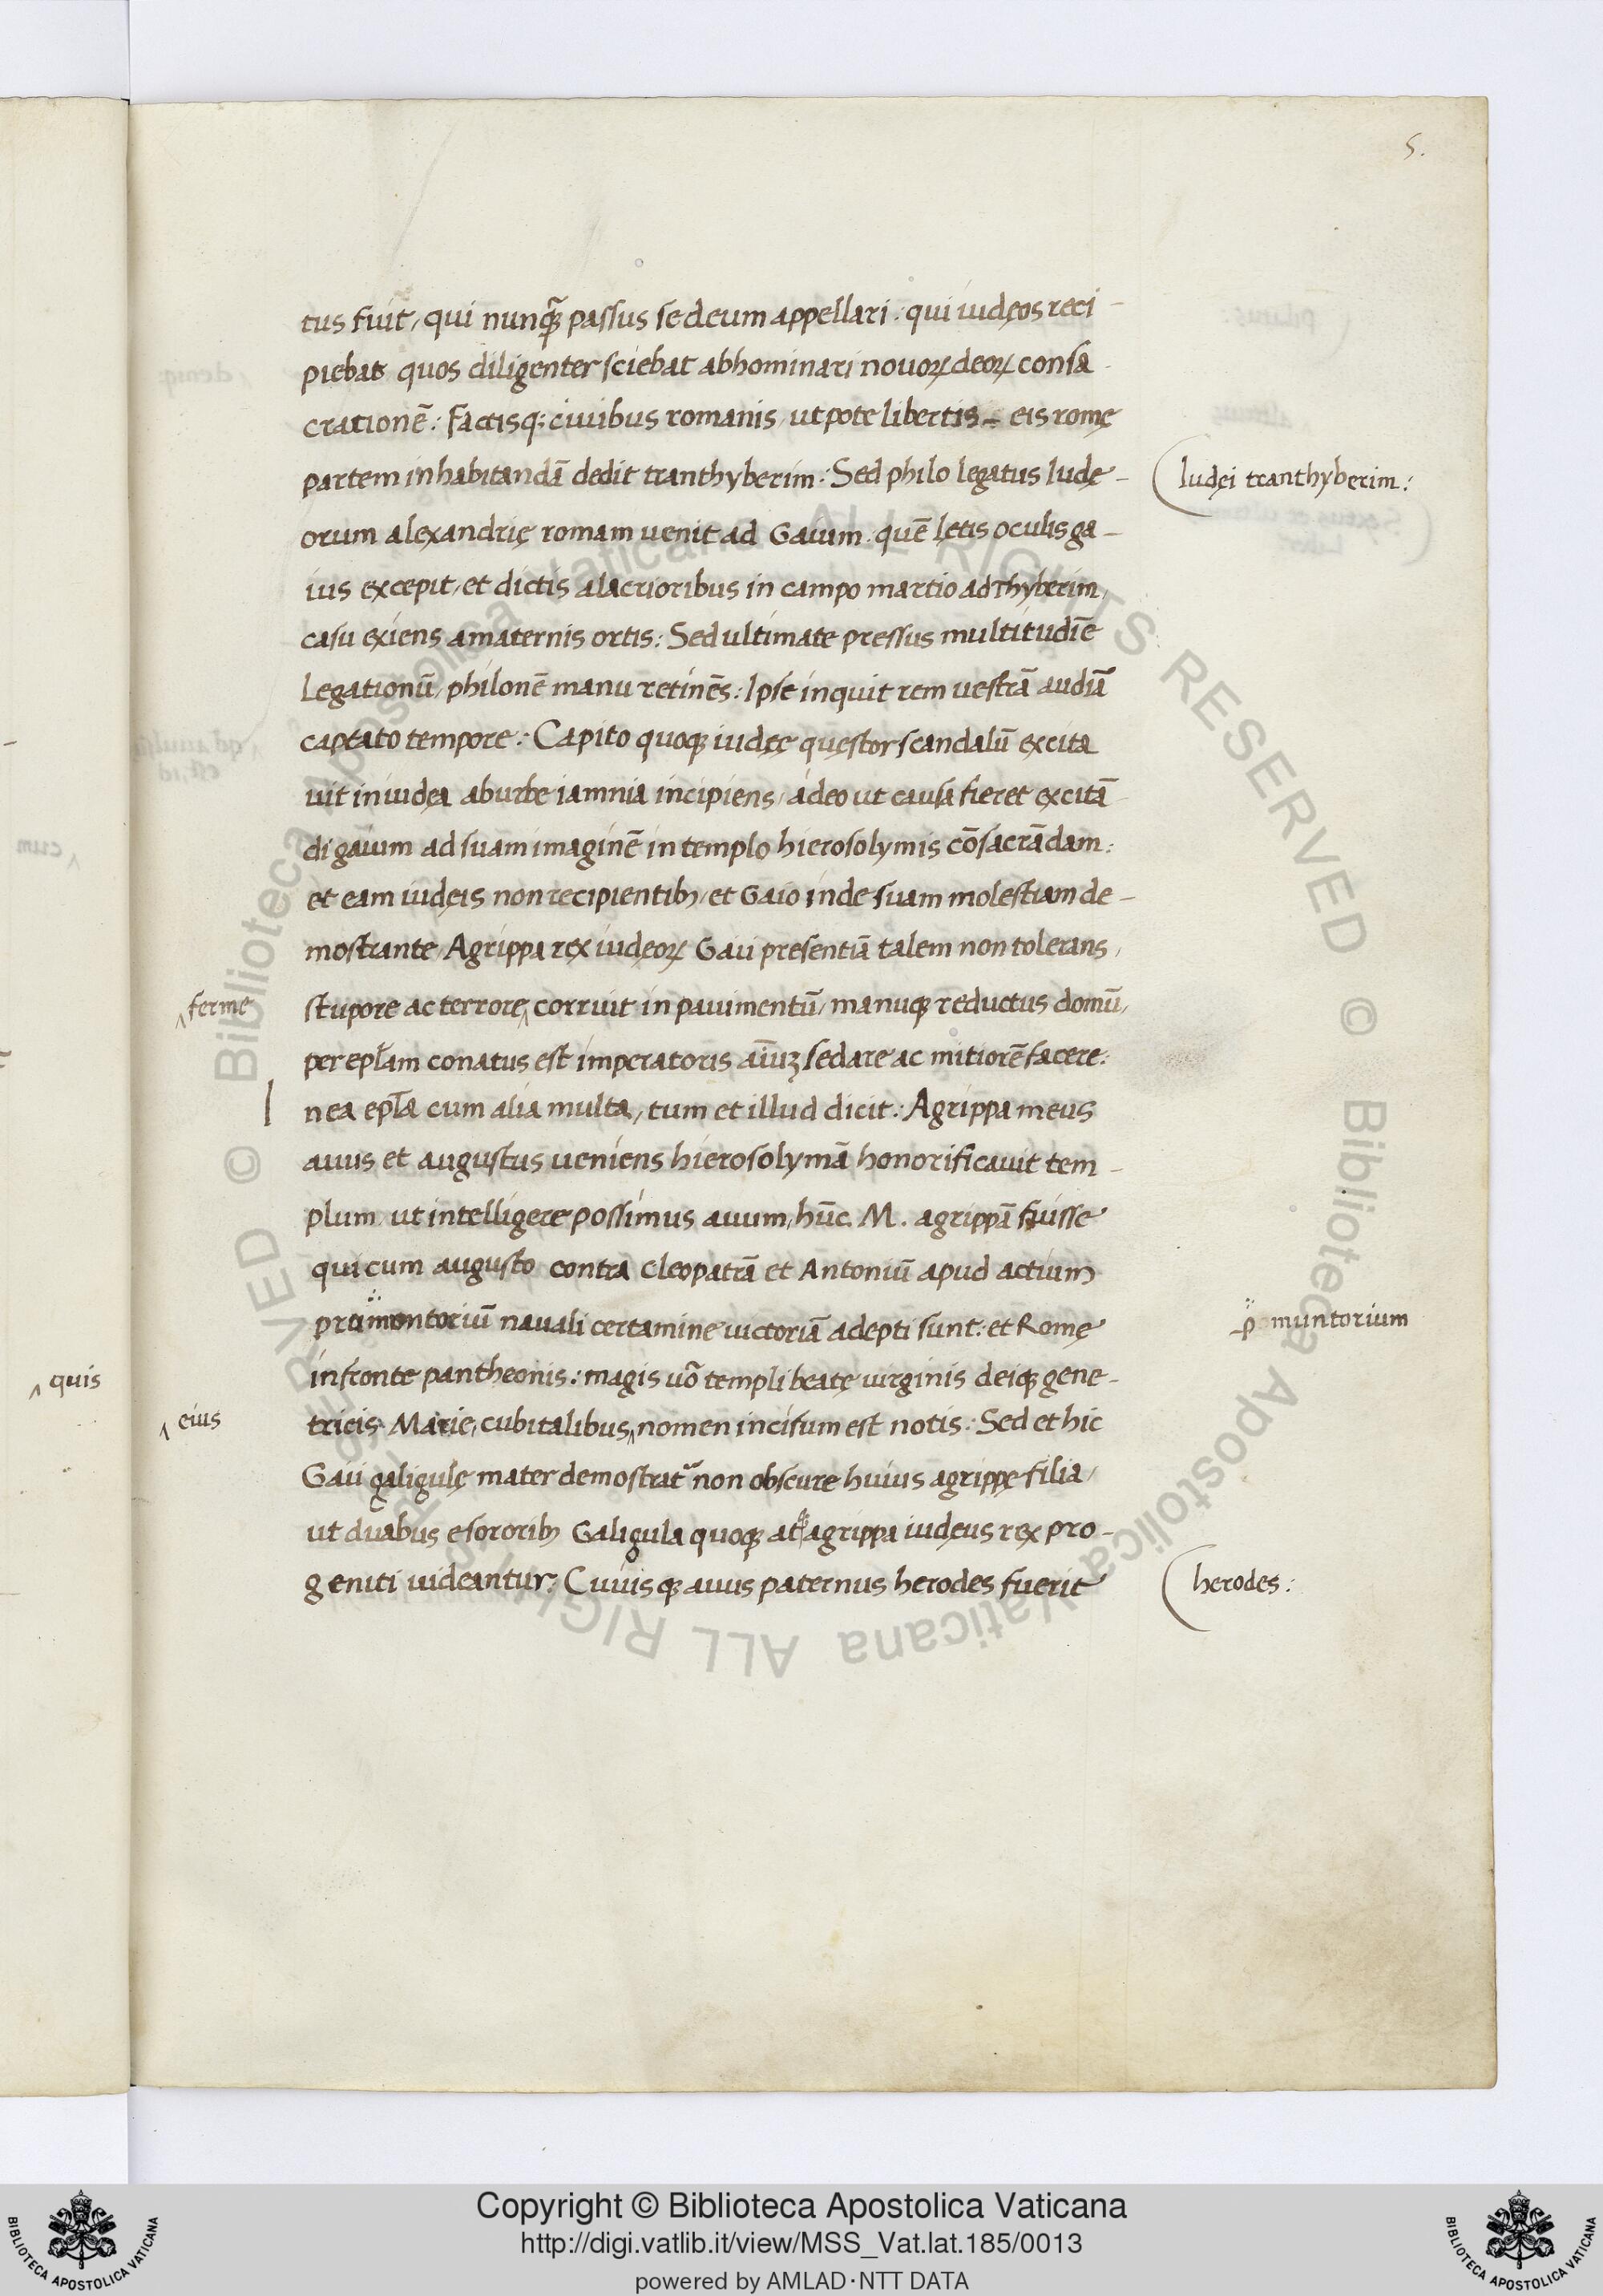 5.
tus fuit, qui nunq̃ passus se deum appellari: qui iudęos reci-
piebat quos diligenter sciebat abhominari nouoꝝ deoꝝ consa
crationē: Factisq; ciuibus romanis, ut pote libertis eis romę
partem inhabitandā dedit tranthyberim: Sed philo legatus Iudę-
Iudęi tranthyberim:
orum alexandrię romam uenit ad Gaium. quē lętis oculis ga-
ius excepit, et dictis alacrioribus in campo martio ad Thyberim,
casu exiens a maternis ortis: Sed ultimate pressus multitudīe
Legationū, philonē manu retinēs: Ipse inquit rem uestrā audiā
captato tempore: Capito quoqꝫ iudęę quęstor scandalū excita
uit in iudęa ab urbe iamnia incipiens, adeo ut causa fieret excitā
di gaium ad suam imaginē in templo hierosolymis cōsacrādam:
et eam iudęis non recipientibꝫ, et Gaio inde suam molestiam de-
mostrante, Agrippa rex iudęoꝝ Gaii presentiā talem non tolerans,
^ ferme
stupore ac terrore^ corruit in pauimentū, manuqꝫ reductus domū,
per epl̄am conatus est imperatoris aīuꝫ sedare ac mitiorē facere:
I nea epl̄a cum alia multa, tum et illud dicit: Agrippa meus
auus et augustus ueniens hierosolymā honorificauit tem-
plum, ut intelligere possimus auum, hūc. M. agrippā fuisse
qui cum augusto contra Cleopatrā et Antoniū apud actium
promontoriū nauali certamine uictoriā adepti sunt: et Romę
ꝓmuntorium
in fronte pantheonis: magis uō templi beatę uirginis deiqꝫ gene-
^ quis
^ eius
tricis Marie, cubitalibus^ nomen incisum est notis: Sed et hic
Gaii galigulę mater demostrat᷑ non obscure huius agrippę filia,
ut duabus e sororibꝫ Galigula quoqꝫ atqꝫ agrippa iudęus rex pro-
geniti uideantur: Cuiusqꝫ auus paternus herodes fuerit
herodes:
Copyright © Biblioteca Apostolica Vaticana
http://digi.vatlib.it/view/MSS_Vat.lat.185/0013
powered by AMLAD·NTT DATA
BIBLIOTECA APOSTOLICA VATICANA
BIBLIOTECA APOSTOLICA VATICANA
© Biblioteca Apostolica Vaticana ALL RIGHTS RESERVED © Biblioteca Apostolica Vaticana ALL RIGHTS RESERVED